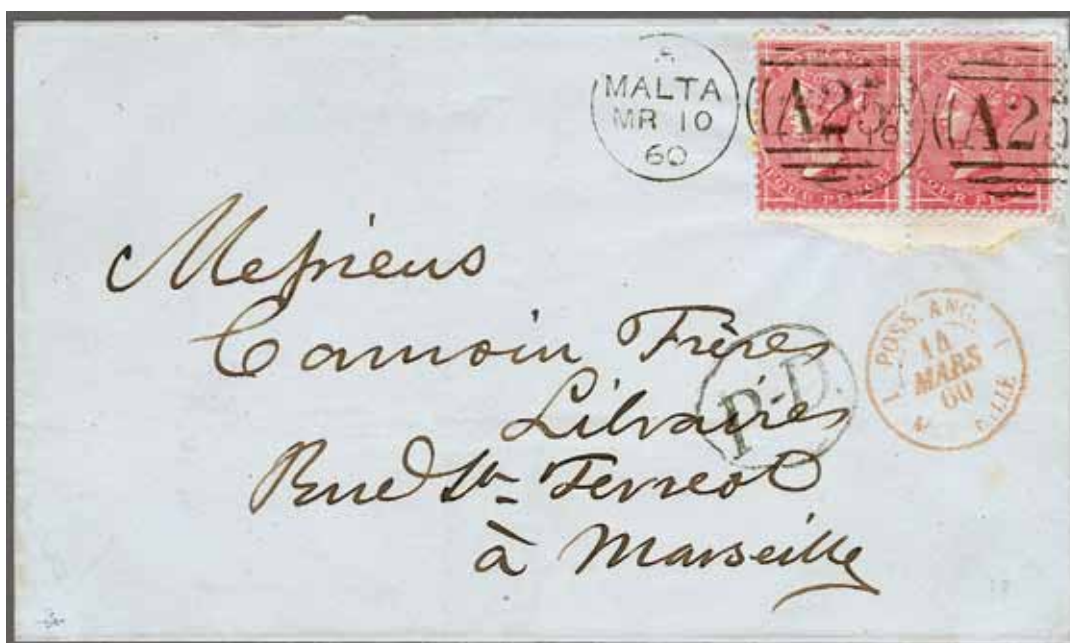 A
MALTA
MR 10
60
A25
A25
FOUR PENCE
FOUR PENCE
Messieurs
Camoin Frères
Libraires
Rue St Ferreol
à Marseille
P.D.
1 POSS. ANG. 1
MARS
60